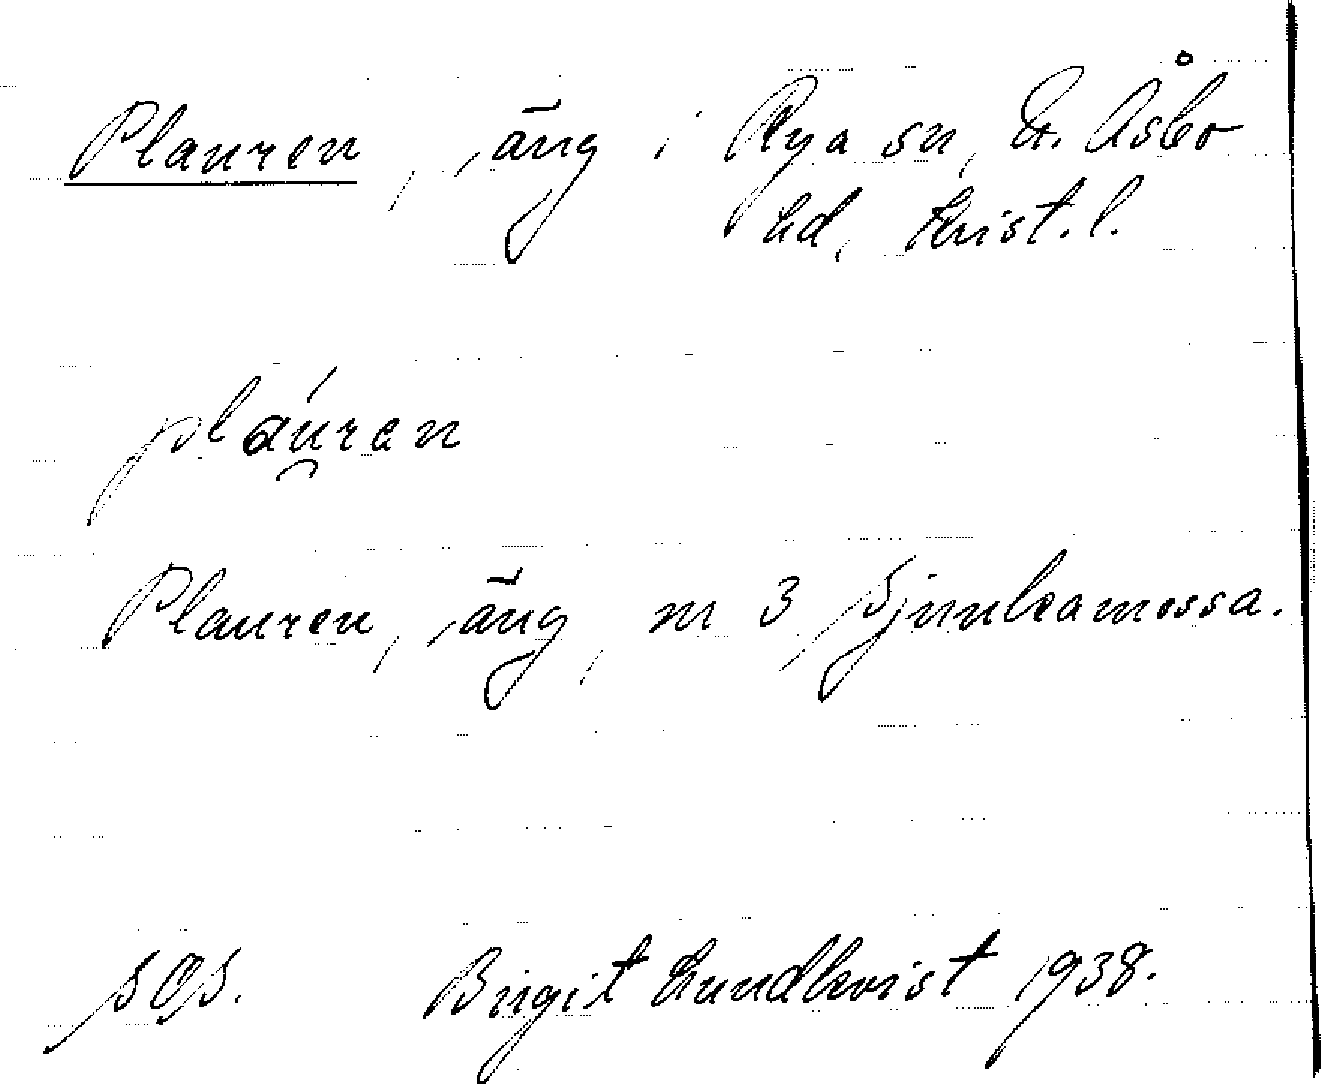 Plauren, äng i Rya sn, N. Åsbo
hd, Krist. l.
pláu̯ren
Plauren, äng, nr 3 Sjunkamossa.
SOS. Birgit Lundkvist 1938.